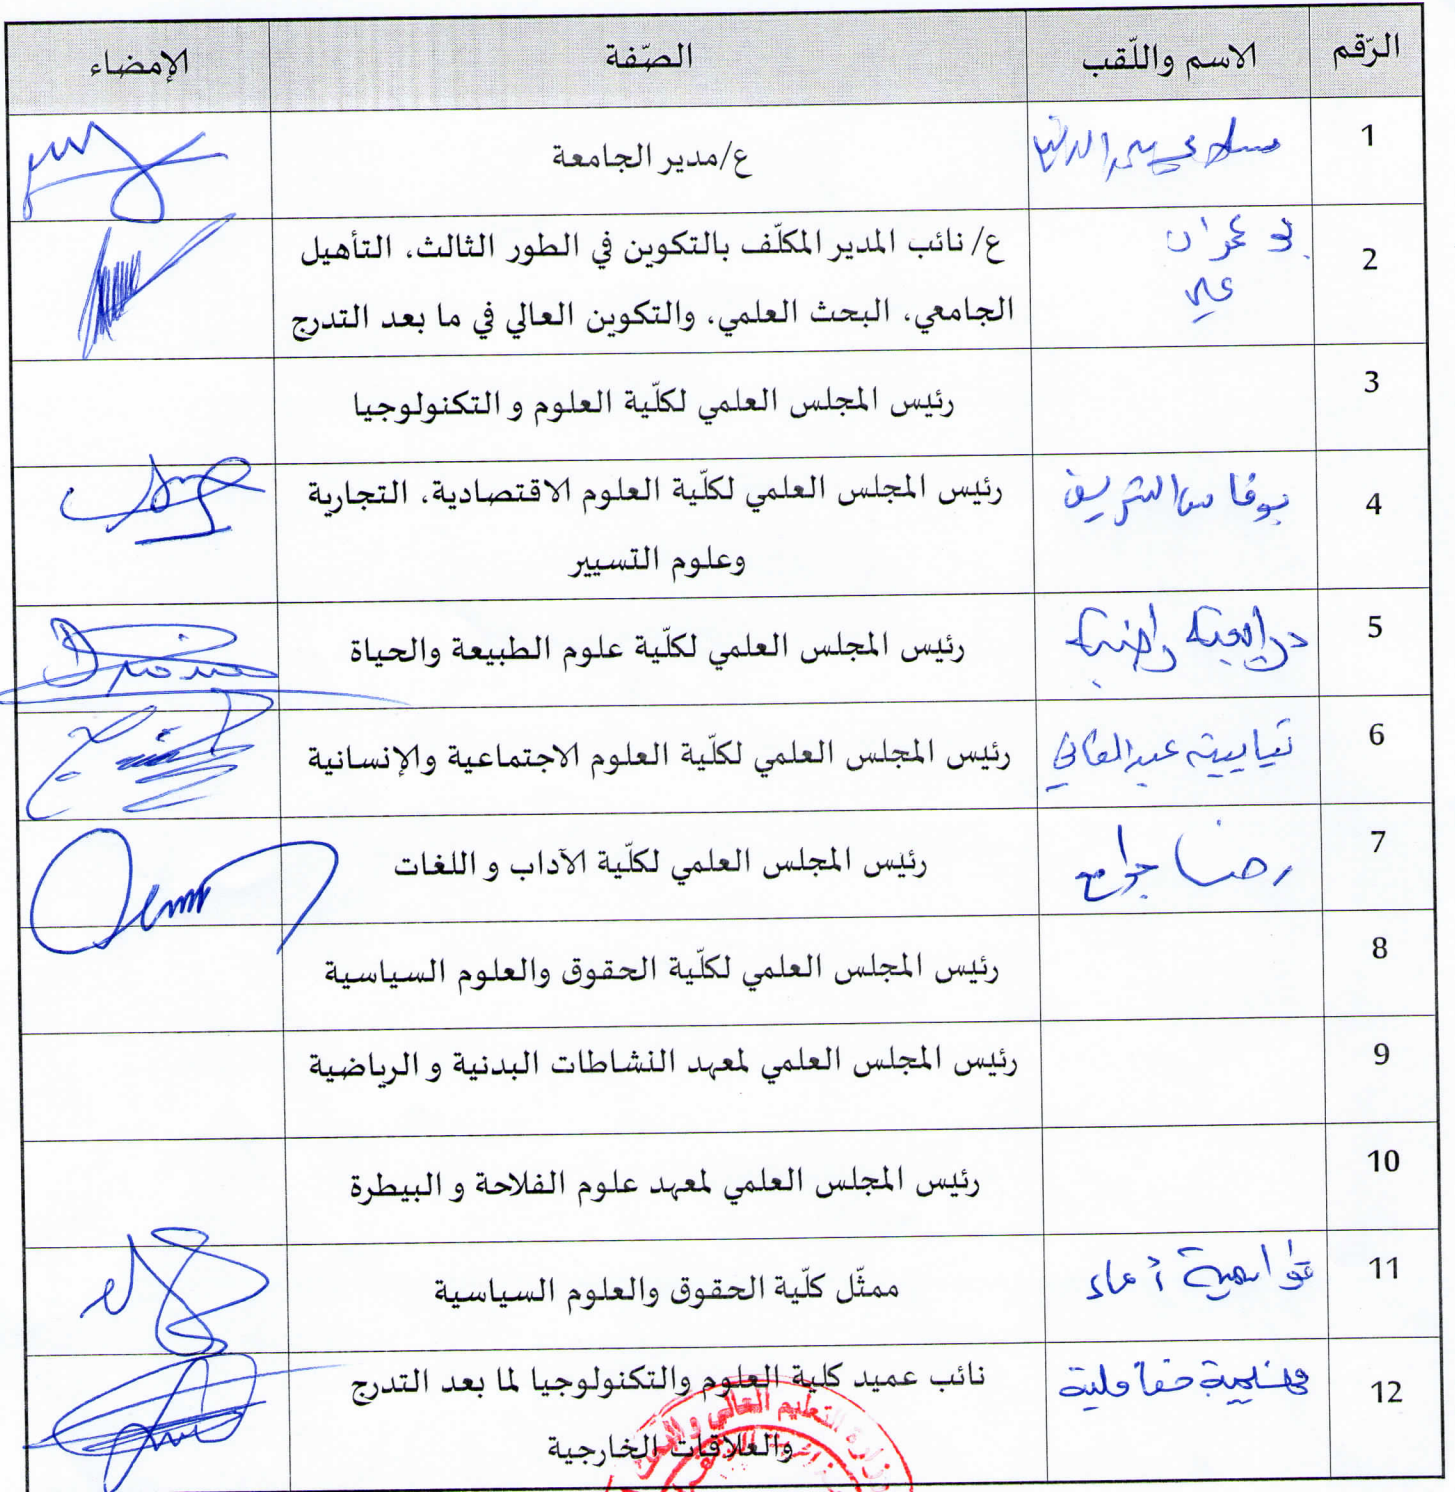 الرّقم الاسم واللّقب الصّفة الإمضاء
1 ع/مدير الجامعة
2 بو عمران علي ع/ نائب المدير المكلّف بالتكوين في الطور الثالث، التأهيل
الجامعي، البحث العلمي، والتكوين العالي في ما بعد التدرج
3 رئيس المجلس العلمي لكلّية العلوم و التكنولوجيا
4 بوفاس الشريف رئيس المجلس العلمي لكلّية العلوم الاقتصادية، التجارية
وعلوم التسيير
5 راضية رئيس المجلس العلمي لكلّية علوم الطبيعة والحياة
6 رئيس المجلس العلمي لكلّية العلوم الاجتماعية والإنسانية
7 رضا جوامع رئيس المجلس العلمي لكلّية الآداب و اللغات
8 رئيس المجلس العلمي لكلّية الحقوق والعلوم السياسية
9 رئيس المجلس العلمي لمعهد النشاطات البدنية و الرياضية
10 رئيس المجلس العلمي لمعهد علوم الفلاحة و البيطرة
11 ممثّل كلّية الحقوق والعلوم السياسية
12 نائب عميد كلية العلوم والتكنولوجيا لما بعد التدرج
والعلاقات الخارجية
وزارة التعليم العالي و